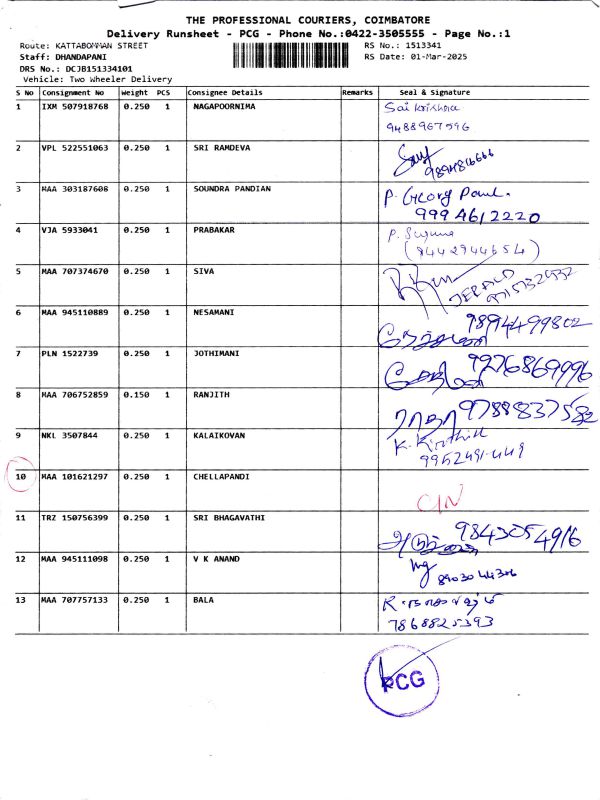 THE PROFESSIONAL COURIERS, COIMBATORE
Delivery Runsheet - PCG - Phone No.:0422-3505555 - Page No.:1
Route: KATTABOMMAN STREET RS No.: 1513341
Staff: DHANDAPANI RS Date: 01-Mar-2025
DRS No.: DCJB151334101
Vehicle: Two Wheeler Delivery
S No Consignment No Weight PCS Consignee Details Remarks Seal & Signature
1 IXM 507918768 0.250 1 NAGAPOORNIMA Sai krishna
9488967596
2 VPL 522551063 0.250 1 SRI RAMDEVA
9894816666
3 MAA 303187608 0.250 1 SOUNDRA PANDIAN P. Georg Paul.
9994612220
4 VJA 5933041 0.250 1 PRABAKAR P. Suguna
(9442944654)
5 MAA 707374670 0.250 1 SIVA JERALD
9715732932
6 MAA 945110889 0.250 1 NESAMANI 9894499802
7 PLN 1522739 0.250 1 JOTHIMANI 9976869996
8 MAA 706752859 0.150 1 RANJITH ராதா 9788837582
9 NKL 3507844 0.250 1 KALAIKOVAN K. Kirthik
9952491449
10 MAA 101621297 0.250 1 CHELLAPANDI C/N
11 TRZ 150756399 0.250 1 SRI BHAGAVATHI 9843054916
12 MAA 945111098 0.250 1 V K ANAND
8903044306
13 MAA 707757133 0.250 1 BALA
7868825393
PCG